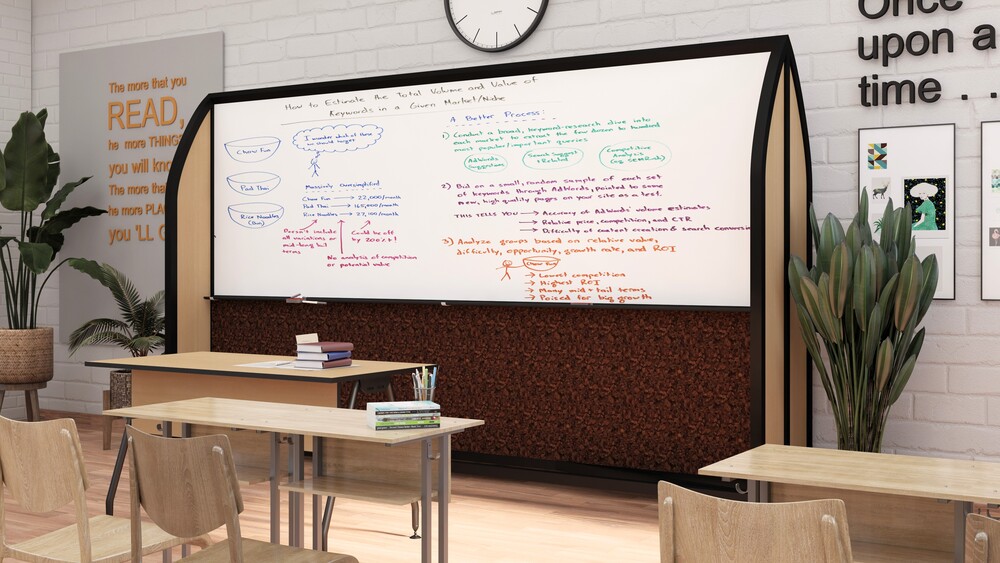 The more that you
READ,
he more THING
you will kno
The more tha
he more PLA
you 'LL G
Once
upon a
time . .
How to Estimate the Total Volume and Value of
Keywords in a Given Market/Niche
Chow Fun
Pad Thai
Rice Noodles
I wonder which of these
we should target
Massively Oversimplified
Chow Fun → 22,000/month
Pad Thai → 165,000/month
Rice Noodles → 27,100/month
Doesn't include
all variations or
mid-long tail
terms
Could be off
by 200%!
No analysis of competition
or potential value
A Better Process:
1) Conduct a broad, keyword-research dive into
each market to extract the few dozen to hundred
most popular/important queries
AdWords
Suggestion
Search Suggest
+ Related
Competitive
Analysis
(e.g. SEMRush)
2) Bid on a small, random sample of each set
of keywords through AdWords, pointed to some
new, high quality pages on your site as a test
THIS TELLS YOU → Accuracy of AdWords' volume estimates
→ Relative price, competition, and CTR
→ Difficulty of content creation & search conversion
3) Analyze groups based on relative value,
difficulty, opportunity, growth rate, and ROI
Chow Fun
→ Lowest competition
→ Highest ROI
→ Many mid + tail terms
→ Poised for big growth